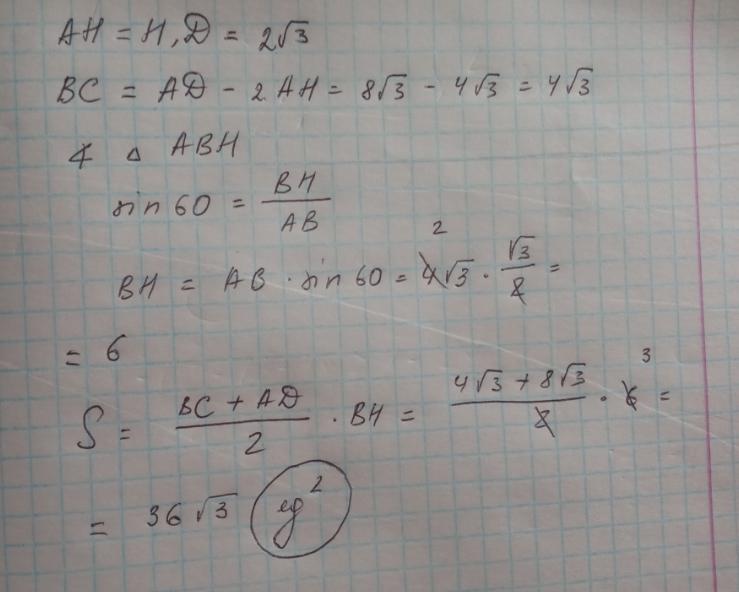 AH = H₁D = 2√3
BC = AD - 2AH = 8√3 - 4√3 = 4√3
∢ △ ABH
sin 60 = BH/AB
BH = AB · sin 60 = 4√3 · √3/2 =
2
= 6
S = (BC + AD)/2 · BH = (4√3 + 8√3)/2 · 6 =
3
= 36√3 eg²